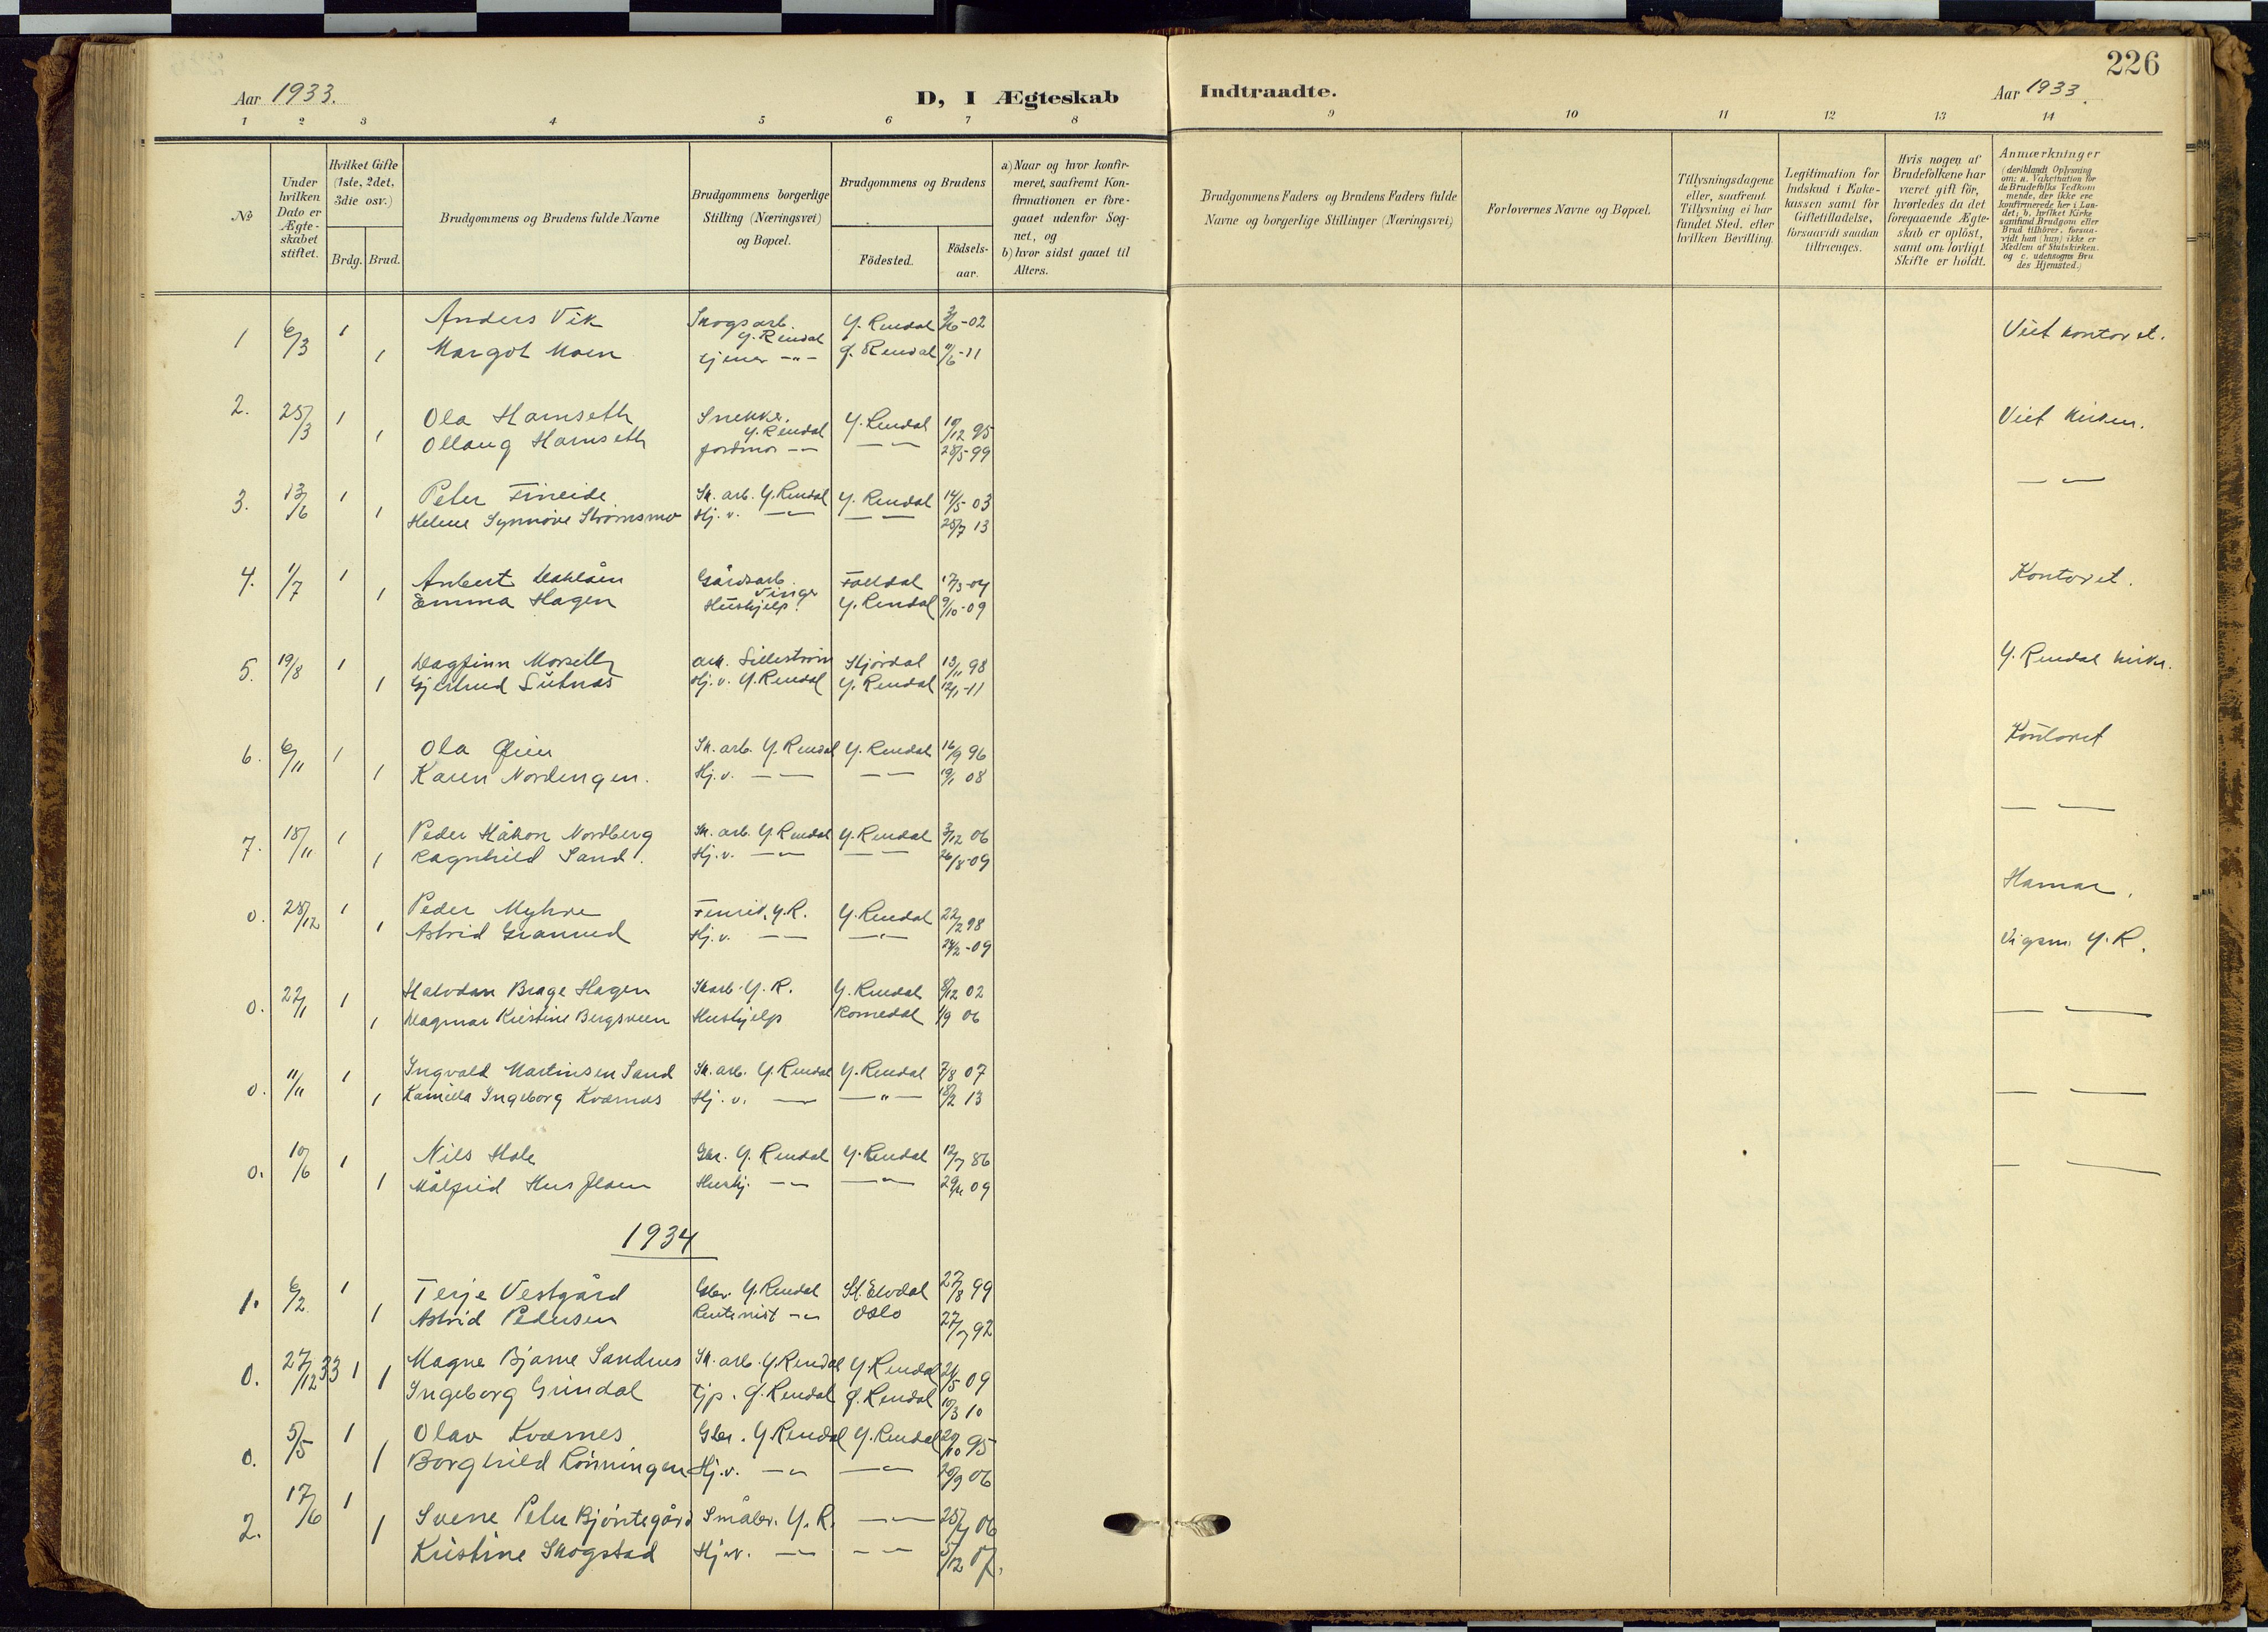 226
Aar 1933. D, I Ægteskab Indtraadte. Aar 1933.
1 2 3 4 5 6 7 8 9 10 11 12 13 14
№
Under hvilken Dato er Ægteskabet stiftet.
Hvilket Gifte (1ste, 2det, 3die osv.)
Brdg. Brud.
Brudgommens og Brudens fulde Navne
Brudgommens borgerlige Stilling (Næringsvei) og Bopæl.
Brudgommens og Brudens
Födested. Födsels-aar.
a) Naar og hvor konfir-
meret, saafremt Kon-
firmationen er fore-
gaaet udenfor Sog-
net, og
b) hvor sidst gaaet til
Alters.
Brudgommens Faders og Brudens Faders fulde
Navne og borgerlige Stillinger (Næringsvei)
Forlovernes Navne og Bopæl.
Tillysningsdagene
eller, saafremt
Tillysning ei har
fundet Sted, efter
hvilken Bevilling.
Legitimation for
Indskud i Enke-
kassen samt for
Giftetilladelse,
forsaavidt saadan
tiltrænges.
Hvis nogen af
Brudefolkene har
været gift för,
hvorledes da det
foregaaende Ægte-
skab er oplöst,
samt om lovligt
Skifte er holdt.
Anmærkninger
(deriblandt Oplysning
om: a. Vakcination for
de Brudefolks Vedkom
mende, der ikke ere
konfirmerede her i Lan-
det; b. hvilket Kirke
samfund Brudgom eller
Brud tilhörer, forsaa-
vidt han (hun) ikke er
Medlem af Statskirken.
og c. udensogns Bru
des Hjemsted.)
1 6/3 1 Anders Vik Skogsarb. Y. Rendal Y. Rendal 3/6-02 Viet kontoret.
1 Margot Moen tjener -"- Ø. Rendal 11/6-11
2. 25/3 1 Ola Hamseth Snekker. Y. Rendal Y. Rendal 10/12 95 Viet kirken.
1 Ollaug Hamseth jordmor -"- -"- 28/5-99
3. 13/6 1 Peter Fineide Sk. arb. Y. Rendal Y. Rendal 14/5 03 -"-
1 Helene Synnøve Strømsmo Hj. v. -"- -"- 25/7 13
4. 1/7 1 Dahlåen Gårdsarb. Vinger Folldal 17/3-04 Kontoret.
1 Emma Hagen Hushjelp. Y. Rendal 9/10-09
5. 19/8 1 Dagfinn Morseth arb. Lillestrøm Stjørdal 13/11 98 Y. Rendal kirke.
1 Gjertrud Lutnæs Hj. v. Y. Rendal Y. Rendal 12/1-11
6. 6/11 1 Ola Øien Sk. arb. Y. Rendal Y. Rendal 16/9 96 Kontoret
1 Karen Nordengen. Hj. v. -"- -"- 19/1 08
7. 18/11 1 Peder Håkon Nordberg Sk. arb. Y. Rendal Y. Rendal 3/12 06 -"-
1 Ragnhild Sand. Hj. v. -"- -"- 26/8-09
0. 28/12 1 Peder Myhre Y. R. Y. Rendal 22/2 98 Hamar.
1 Astrid Granrud Hj. v. -"- -"- 24/2-09 Vigsm. Y. R.
0. 22/1 1 Halvdan Brage Hagen Skarb. Y. R. Y. Rendal 8/12 02
1 Dagmar Kristine Bergsveen Hushjelp Romedal 1/9 06 -"-
0. 11/11 1 Ingvald Martinsen Sand Sk. arb. Y. Rendal Y. Rendal 7/8 07
1 Kamilla Ingeborg Kværnæs Hj. v. -"- -"- 18/2 13 -"-
0. 10/6 1 Nils Hole Gbr. Y. Rendal Y. Rendal 12/7 86
1 Målfrid Hushj. -"- -"- 09 -"-
1934
1. 6/2 1 Terje Vestgård Gbr. Y. Rendal St. Elvdal 27/8 99
1 Astrid Pedersen Rentenist -"- Oslo 27/7 92
0. 27/12 33 1 Magne Bjarne Sandnes Sk. arb. Y. Rendal Y. Rendal 21/5 09
1 Ingeborg Grindal tjp. Ø. Rendal Ø. Rendal 10/3 10
0. 5/5 1 Olav Kværnes Gbr. Y. Rendal Y. Rendal 20/10 95
1 Borghild Lønningen Hj. v. -"- -"- 20/9 06
2. 17/6 1 Sverre Peter Bjøntegård Småbr. Y. R. -"- 25/4 06
1 Kristine Skogstad Hj. v. -"- -"- 5/12 07.